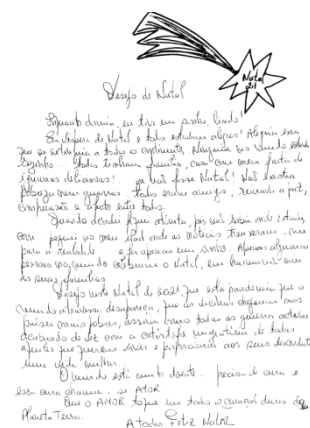 Natal
Desejo de Natal
Enquanto dormia, eu tive um sonho, lindo!
Era véspera de Natal e todos estavam alegres! Alegria essa
que se estendia a todos o continente. Ninguém no mundo estava
sozinho... todos tinham família, casa com mesa farta de
iguarias deliciosas! mas fosse Natal! Não havia
pobreza nem guerras todos eram amigos, reinando a paz,
compreensão e afeto entre todos.
Quando acordei fiquei atónita, pois não sabia onde estava,
peguei no meu onde as notícias trouxeram-me
para a realidade sonho. Apenas algumas
pessoas no mundo celebraram o Natal, em com
as suas famílias.
Desejo neste Natal de 2021 que esta pandemia que o
mundo atravessa desapareça, que as vacinas cheguem aos
países mais pobres, assim como todas as guerras
acabando de vez com a catástrofe migratória de todos
aqueles que querem viver e proporcionar aos seus descendentes
uma vida melhor.
O mundo está muito doente precisa de cura e
essa cura chama-se AMOR
Que o AMOR toque em todos os corações duros do
Planeta Terra.
A todos Feliz Natal